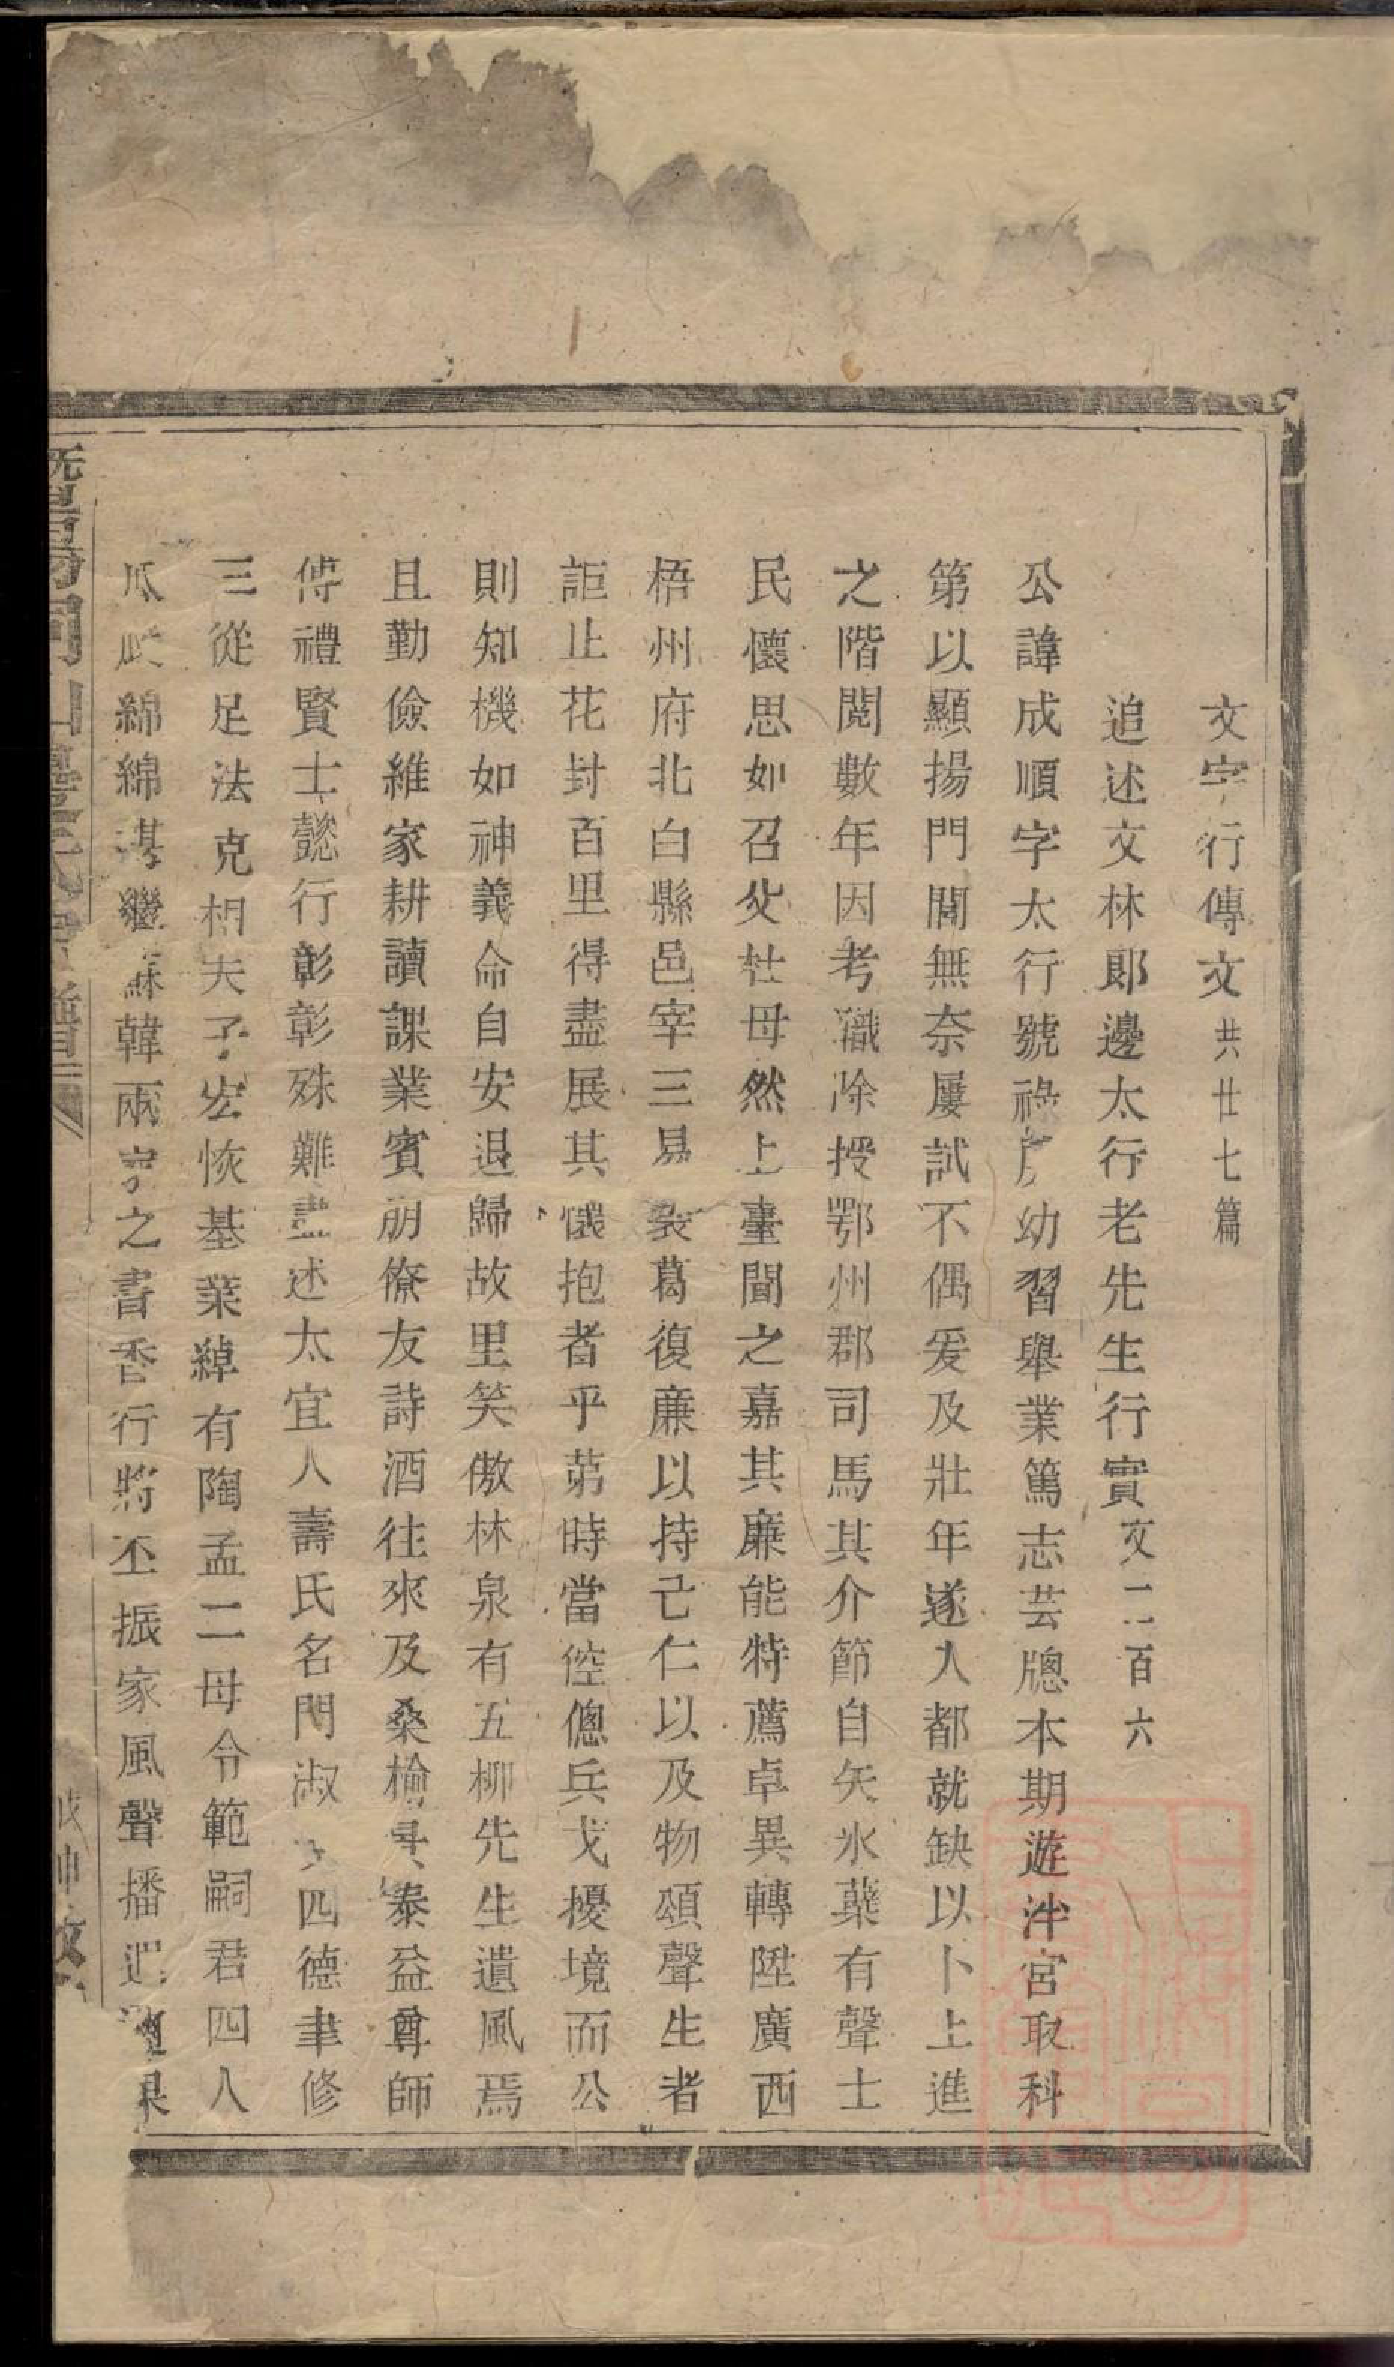 文字行傳文共廿七篇
追述文林郎邊太行老先生行實文二百六
公諱成順字太行號祿 幼習舉業篤志芸牕本期遊泮宮取科
第以顯揚門閭無奈屢試不偶爰及壯年遂入都就缺以卜上進
之階閱數年因考職除授鄂州郡司馬其介節自矢氷蘗有聲士
民懷思如召父杜母然上臺聞之嘉其廉能特薦卓異轉陞廣西
梧州府北白縣邑宰三易裘葛復廉以持己仁以及物頌聲生者
詎止花封百里得盡展其懷抱者乎苐時當倥傯兵戈擾境而公
則知機如神義命自安退歸故里笑傲林泉有五柳先生遺風焉
且勤儉維家耕讀課業賓朋僚友詩酒往來及桑榆 泰益尊師
傅禮賢士懿行彰彰殊難盡述太宜人壽氏名門淑 四德聿修
三從足法克相夫子宏恢基業綽有陶孟二母令範嗣君四人
瓜瓞綿綿 繼 韓兩 之書香行將丕振家風聲播遐
暨陽同山邊氏宗譜